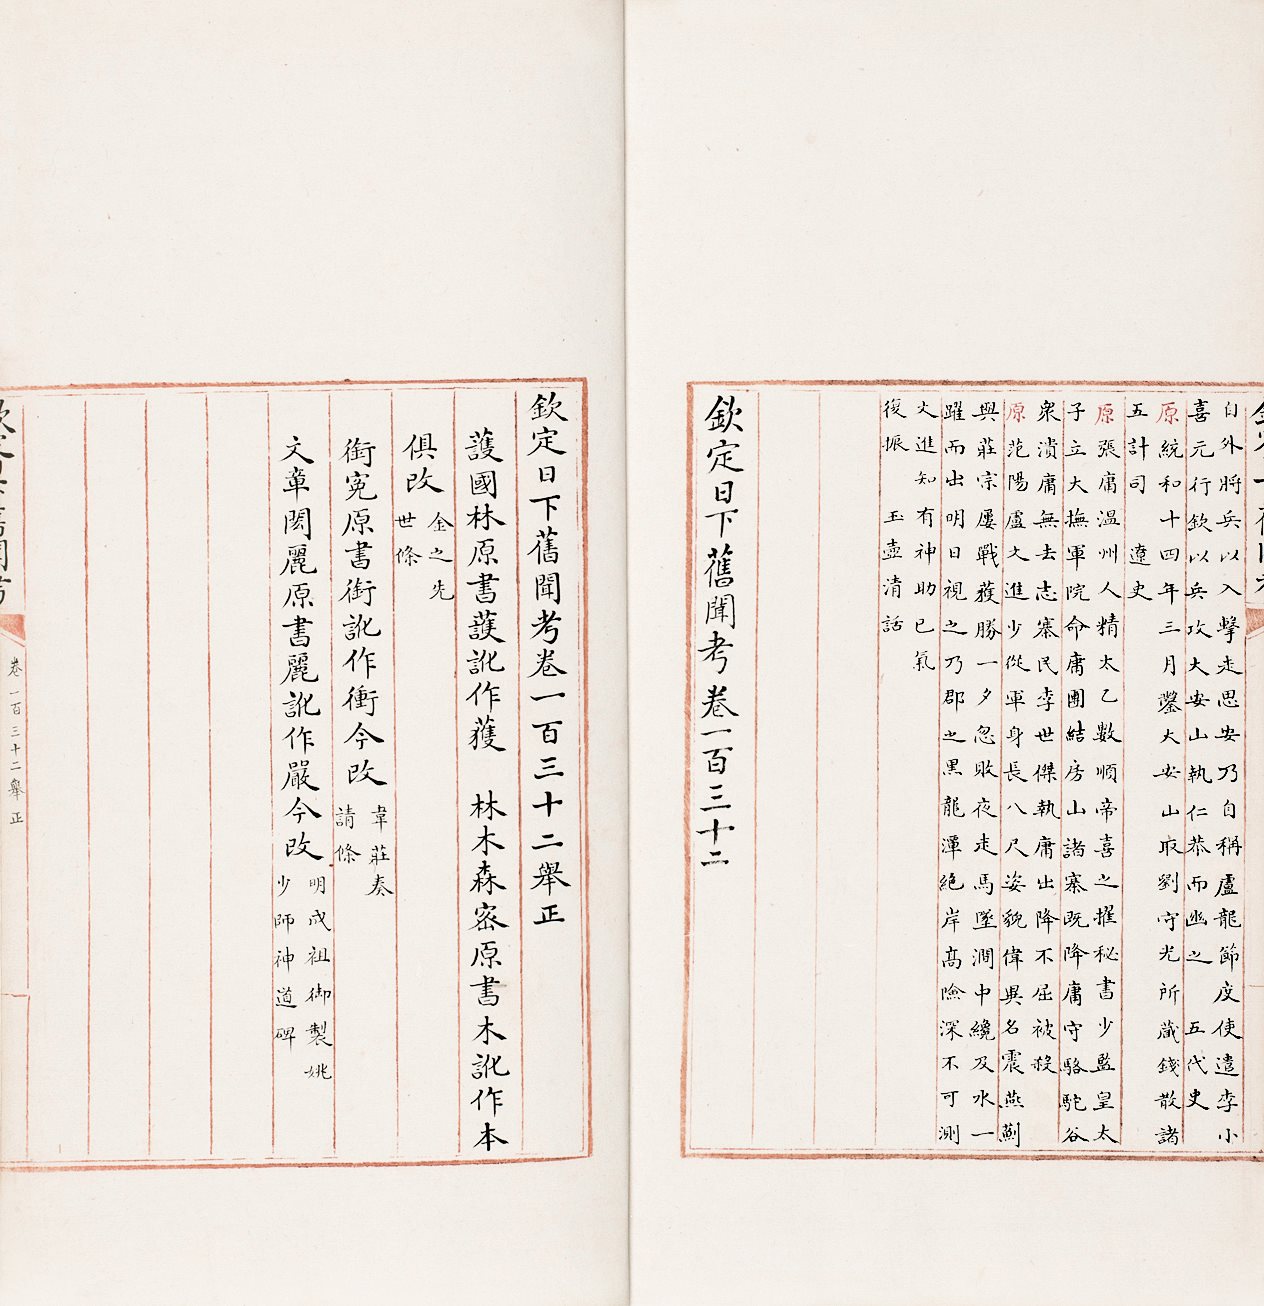 自外將兵以入擊走思安乃自稱盧龍節度使遣李小
喜元行欽以兵攻大安山執仁恭而幽之 五代史
原統和十四年三月鑿大安山取劉守光所藏錢散諸
五計司 遼史
原張庸溫州人精太乙數順帝喜之擢秘書少監皇太
子立大撫軍院命庸團結房山諸寨既降庸守駱駝谷
衆潰庸無去志寨民李世傑執庸出降不屈被殺
原范陽盧文進少從軍身長八尺姿貌偉異名震燕薊
興莊宗屢戰獲勝一夕忽敗夜走馬墜澗中纔及水一
躍而出明日視之乃郡之黑龍潭絕岸髙險深不可測
文進知有神助已氣
復振 玉壺清話
欽定日下舊聞考卷一百三十二
欽定日下舊聞考卷一百三十二舉正
護國林原書護訛作獲 林木森宻原書木訛作本
俱改 金之先
世條
街寃原書街訛作衝今改 韋莊奏
請條
文章閎麗原書麗訛作嚴今改 明成祖御製姚
少師神道碑
卷一百三十二舉正